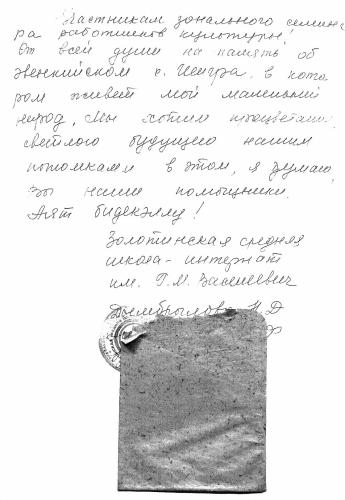 Участникам зонального семина
ра работников культуры!
От всей души на память об
эвенкийском с. Иенгра, в кото
ром живет мой маленький
народ. Мы хотим процветания,
светлого будущего нашим
потомкам в этом, я думаю,
вы наши помощники.
Аят бидекэллу!
Золотинская средняя
школа-интернат
им. Г.М. Василевич
Н Д